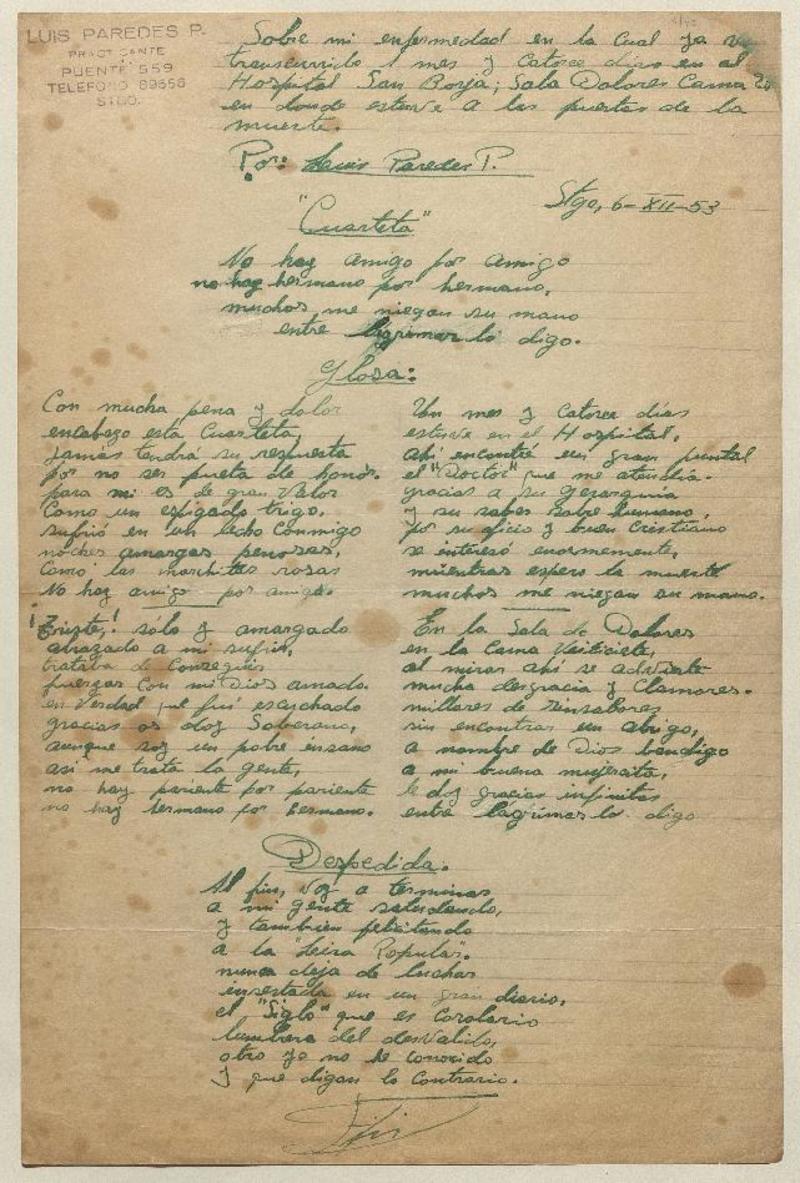 LUIS PAREDES P.
PRACTICANTE
PUENTE 559
TELEFONO 89656
STGO.
Sobre mi enfermedad en la Cual ya va
transcurrido 1 mes y Catorce dias en el
Hospital San Borja; Sala Dolores Cama 20
en donde estuve a las puertas de la
muerte.
Por: Luis Paredes P.
Stgo, 6-XII-53
"Cuarteta"
No hay amigo por amigo
no hay hermano por hermano,
muchos me niegan su mano
entre lágrimas lo digo.
Glosa:
Con mucha pena y dolor
encabezo esta Cuarteta,
jamás tendrá su respuesta
por no ser pueta de honor.
para mi es de gran Valor
Como un espigado trigo,
sufrió en un lecho Conmigo
noches amargas penosas,
Como las marchitas rosas
No hay amigo por amigo.
¡Triste,! sólo y amargado
abrazado a mi sufrir,
trataba de Conseguir
fuerzas Con mi Dios amado.
en Verdad que fuí escuchado
gracias os doy Soberano,
aunque soy un pobre insano
así me trata la gente,
no hay pariente por pariente
no hay hermano por hermano.
Un mes y Catorce días
estuve en el Hospital,
ahí encontré un gran puntal
el "Doctor" que me atendía.
gracias a su gerarquía
y su saber sobre humano,
por su oficio y buen Cristiano
se interesó enormemente,
mientras espero la muerte
muchos me niegan su mano.
En la Sala de Dolores
en la Cama Veiticiete,
al mirar ahí se advierte
mucha desgracia y Clamores.
millares de sinsabores
sin encontrar un abrigo,
a nombre de Dios bendigo
a mi buena mujercita,
le doy gracias infinitas
entre lágrimas lo digo
Despedida.
Al fin, voy a terminar
a mi gente saludando,
y tambien felicitando
a la "Leira Popular".
nunca deja de luchar
insertada en un gran diario,
el "Siglo" que es Corolario
lumbrera del desValido,
otro yo no he conocido
y que digan lo Contrario.